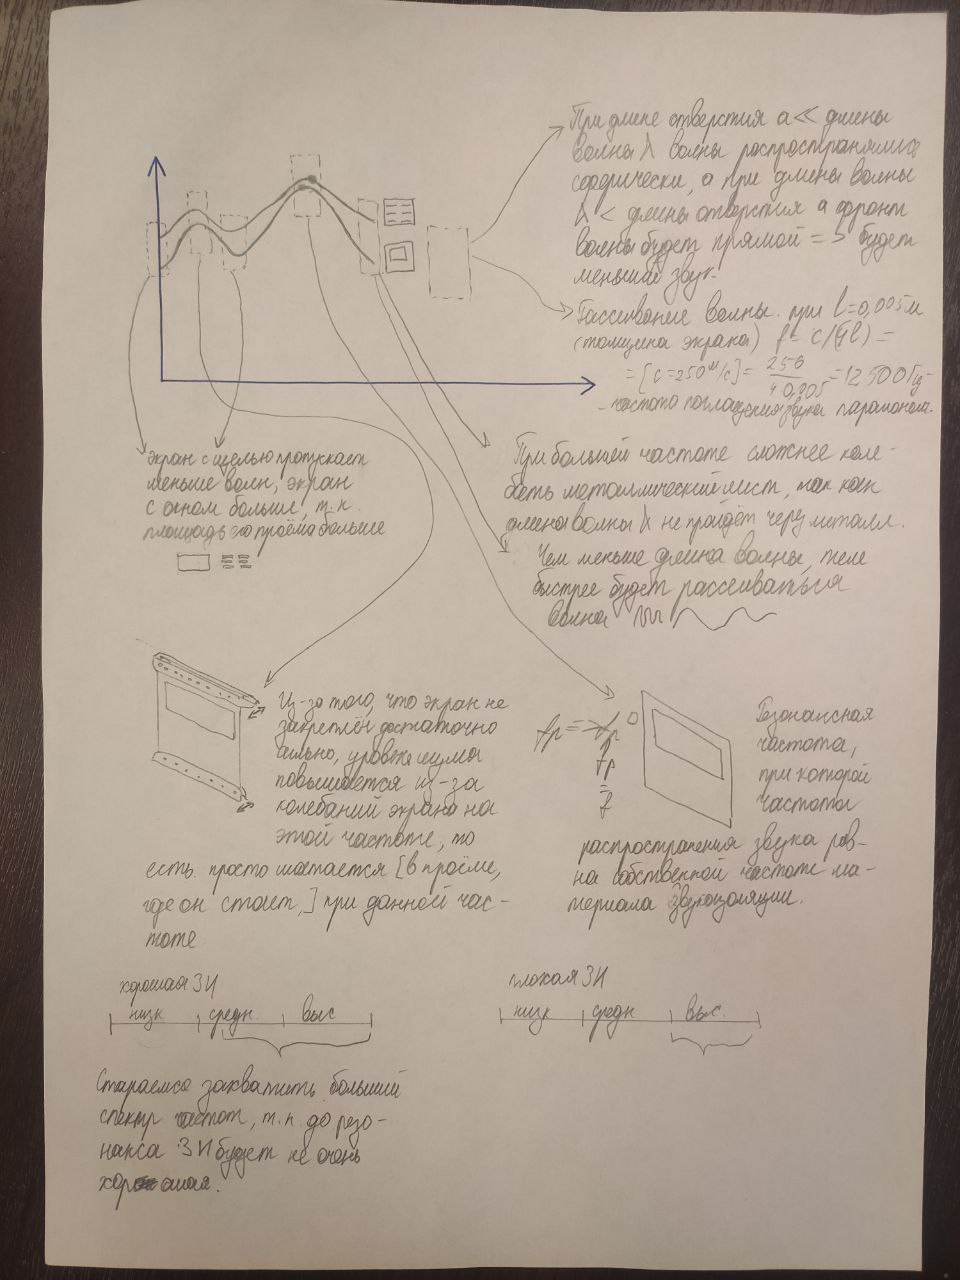 При длине отверстия a << длины
волны λ волны распространялись
сферически, а при длины волны
λ < длины отверстия a фронт
волны будет прямой => будет
меньший звук.
Рассеивание волны. при l=0,005м
(толщина экрана) f = c/(4l) =
= [c=250 м/с] = 250/4·0,005 = 12500Гц -
- частота поглащения звука паралоном.
При большей частоте сложнее коле-
бать металлический лист, так как
длина волны λ не пройдёт через металл.
Чем меньше длина волны, тем
быстрее будет рассеиваться
волна
Экран с щелью пропускает
меньше волн, экран
с окном больше, т.к.
площадь его проёма больше
Из-за того, что экран не
закреплён достаточно
сильно, уровень шума
повышается из-за
колебаний экрана на
этой частоте, то
есть просто шатается [в проёме,
где он стоит,] при данной час-
тоте
fр =
fр
=
f
Резонансная
частота,
при которой
частота
распространения звука рав-
на собственной частоте ма-
териала звукоизоляции.
хорошая ЗИ
низк средн. выс
плохая ЗИ
низк средн выс.
Стараемся захватить больший
спектр частот, т.к. до резо-
нанса ЗИ будет не очень
хорошая.